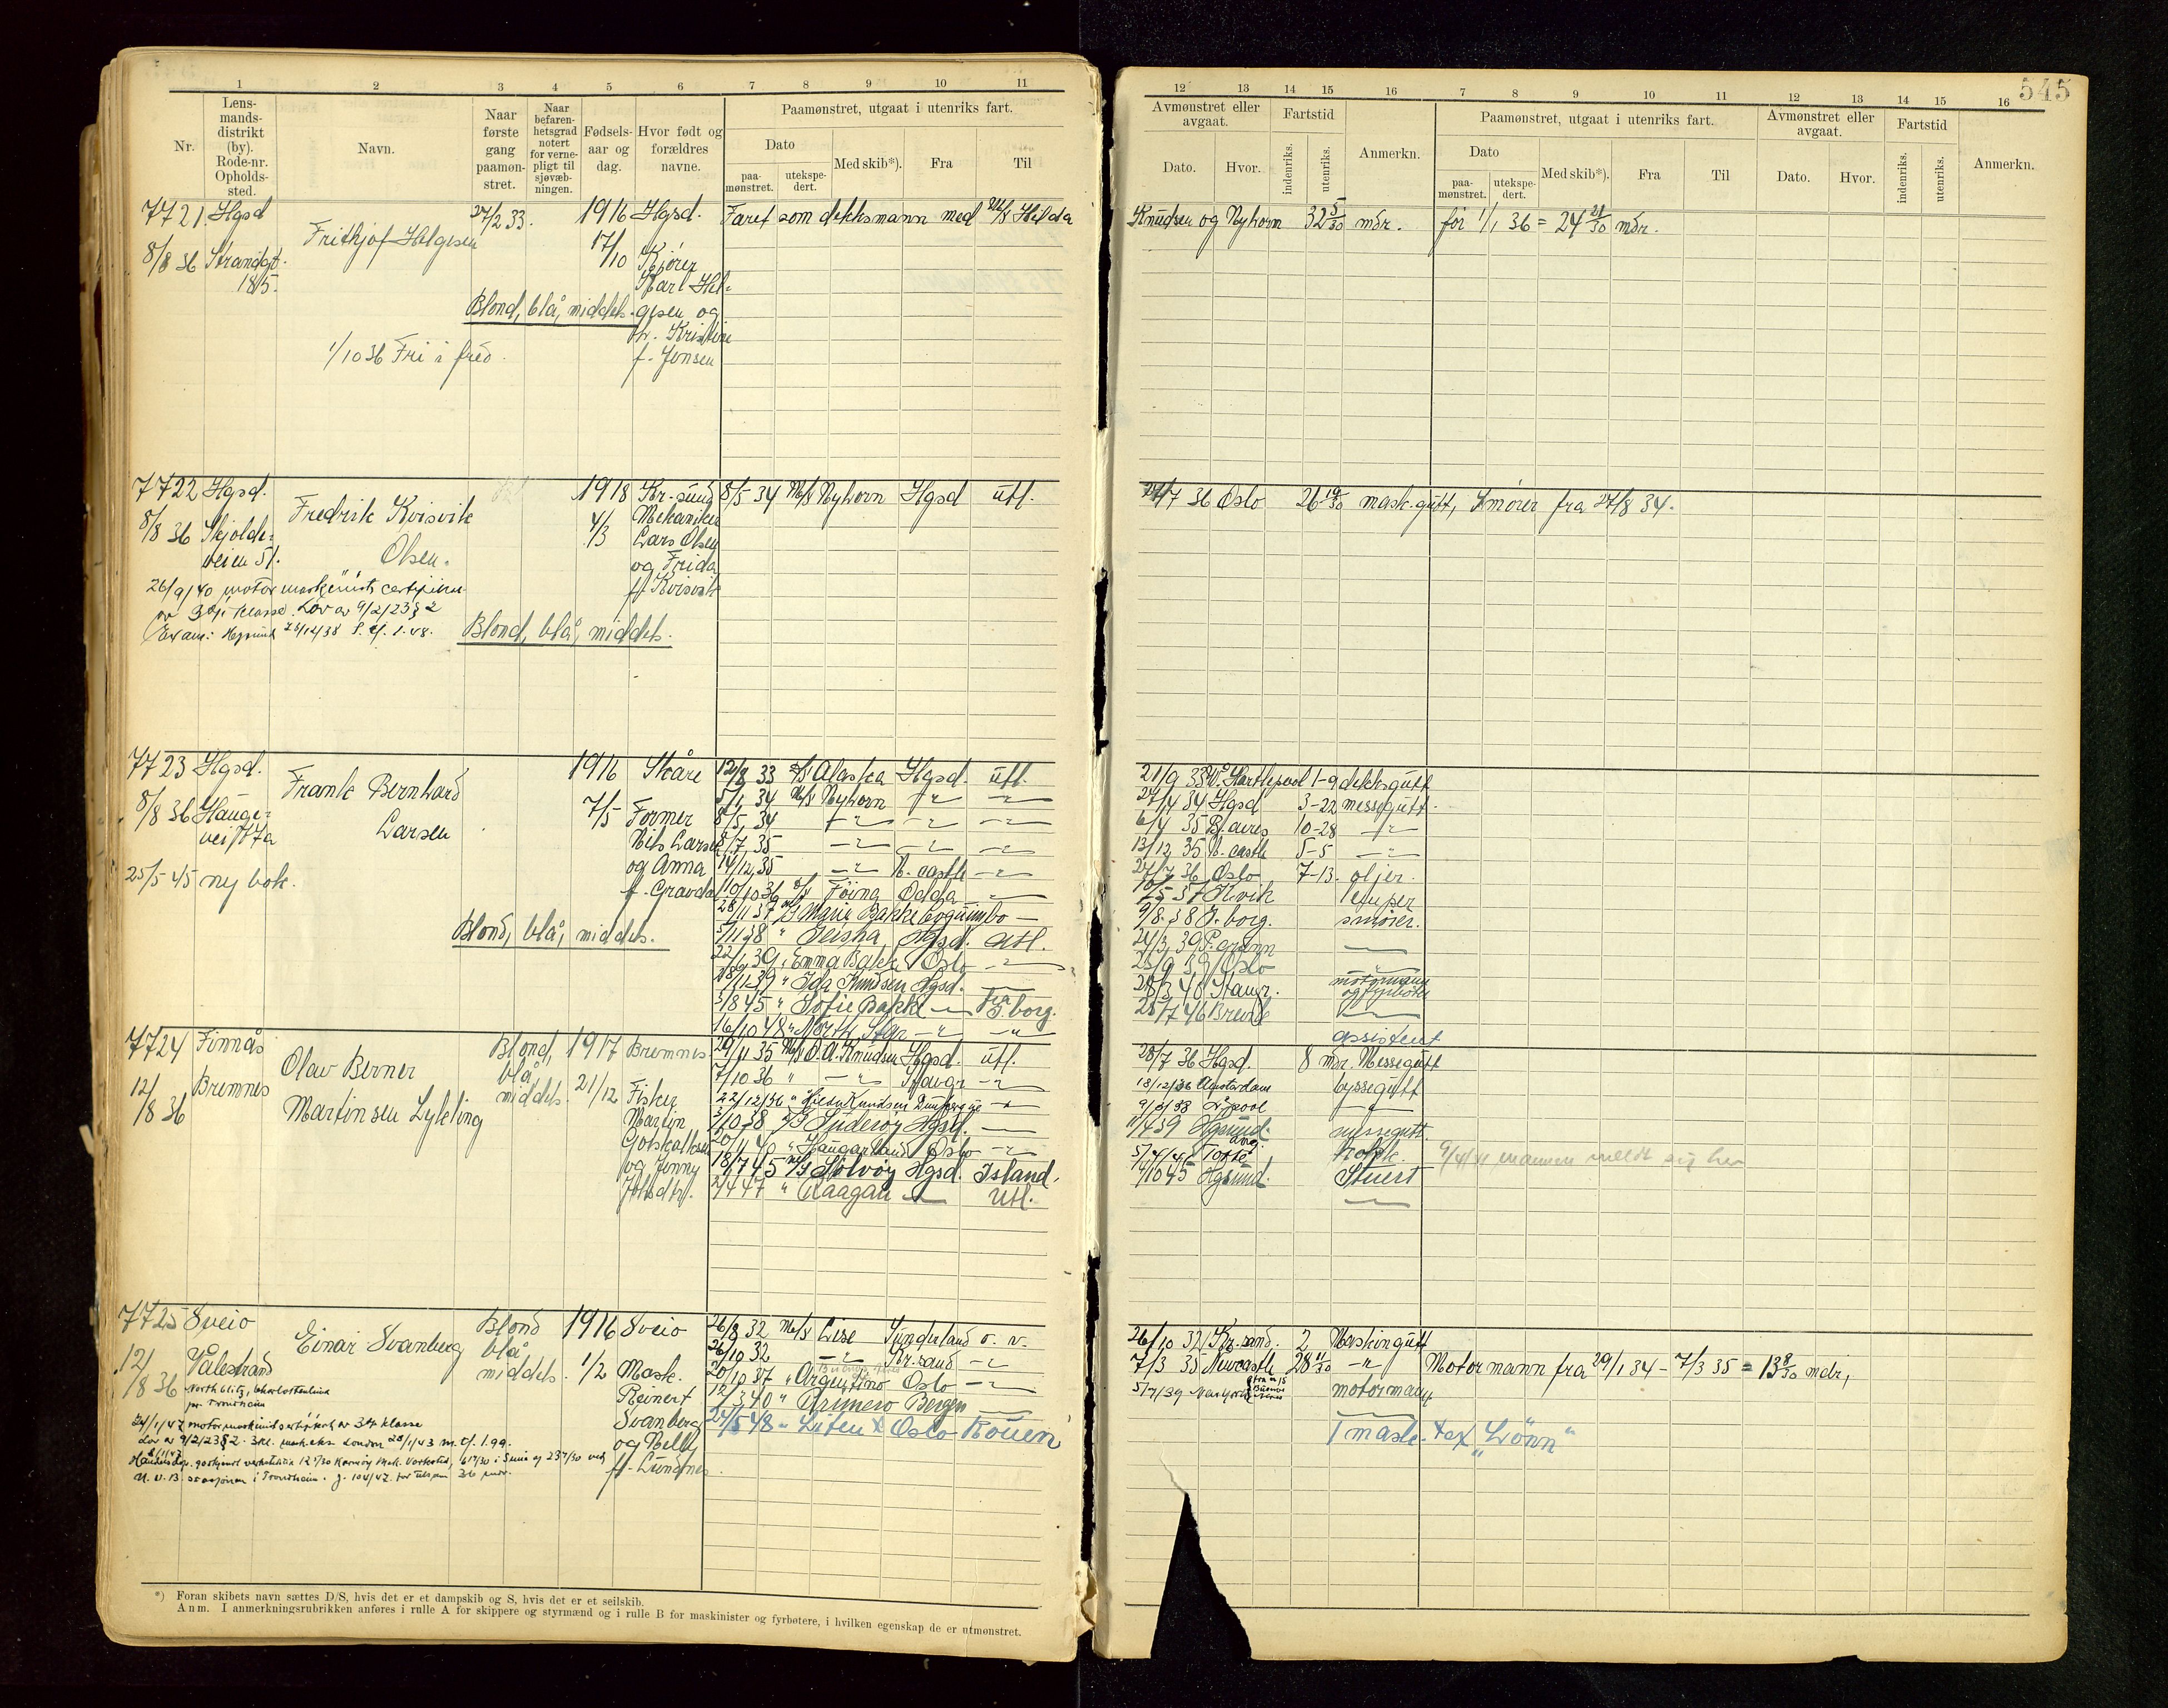 545
1 2 3 4 5 6 7 8 9 10 11
12 13 14 15 16 7 8 9 10 11 12 13 14 15 16
Nr.
Lens-
mands-
distrikt
(by).
Rode-nr.
Opholds-
sted.
Navn.
Naar
første
gang
paamøn-
stret.
Naar
befaren-
hetsgrad
notert
for verne-
pligt til
sjøvæb-
ningen.
Fødsels-
aar og
dag.
Hvor født og
forældres
navne.
Paamønstret, utgaat i utenriks fart.
Dato
paa-
mønstret.
utekspe-
dert.
Med skib*).
Fra
Til
Avmønstret eller
avgaat.
Dato.
Hvor.
Fartstid
indenriks.
utenriks.
Anmerkn.
Paamønstret, utgaat i utenriks fart.
Dato
paa-
mønstret.
utekspe-
dert.
Med skib*).
Fra
Til
Avmønstret eller
avgaat.
Dato.
Hvor.
Fartstid
indenriks.
utenriks.
Anmerkn.
7721 Hgsd 27/2 33. 1916 Hgsd. Faret som dekksmann med M/S Hilda
Knudsen og Nyhorn 32 5/30 mdr. før 1/1 36 = 24 21/30 mdr.
Frithjof Helgesen 17/10
8/8 36 Strandgt. Kjører
185. Karl Hel-
Blond, blå, middels. gesen og
h. Kristine
1/10 36 Fri i fred. f. Jensen
7722 Hgsd. 1918 Kr-sund 8/5 34 M/S Nyhorn Hgsd utl.
27/7 36 Oslo 26 19/30 mask.gutt, Smører fra 27/8 34.
Fredrik Kvisvik 4/3 Mekaniker
8/8 36 Skjolde- Lars Olsen
veien 51. Olsen. og Frida
26/9/40 motormaskinist certifikat f. Kvisvik
av 3dje klasse. Lov av 9/2/23 § 2
Blond, blå, middels.
7723 Hgsd. 1916 Skåre 12/8 33 D/S Alaska Hgsd. utl.
21/9 33 W. Hartlepool 1-9 dekksgutt
Frank Bernhard 5/1 34 M/S Nyhorn
27/4 34 Hgsd 3-22 messegutt.
8/8 36 Hauge- 7/5 Former 8/5 34
6/4 35 B. aires 10-28
vei 77a Larsen Nils Larsen 8/7 35
13/12 35 N. castle 5-5
og Anna 14/12 35 N. castle
27/7 36 Oslo 7-13. oljer.
25/5-45 ny bok. f. Gravdal 10/10 36 Föina Odda
10/5 37 lemper
28/11 37 Marie Bakke
9/8 38 J. borg. smører.
Blond, blå, middels.
5/11 38 " Geisha Hgsd. utl.
24/3 39 P. grunn
22/6 39 " Emma Bakke Oslo
25/9 39 Oslo
18/11 39 " Ida Knudsen Hgsd.
28/3 40 Stavgr. motormann
og fyrbøter
3/8 45 " Sofie Bakke fra G. borg.
25/7 46 Brevik
16/10 48 " North Star
assistent
7724 Finnås Blond, 1917 Bremnes 29/11 35 M/S O.A. Knudsen Hgsd. utl.
28/7 36 Hgsd. 8 mdr. Messegutt
Olav Berner blå, 7/10 36 " Stavgr
18/12/36 Amsterdam byssegutt
12/8 36 Bremnes middels. 21/12 Fisker 22/12/36 " Hilda Knudsen
9/3/38 L'pool
Martinsen Lykling Martin 3/10 38 Suderøy Hgsd.
11/4 39 Hgsund. messegutt.
Gotskalksen 20/11 40 " Haugarland Oslo
5/4/41 Tofte kokk. 9/4/41 mannen meldt sig her
og Jenny 18/7 45 M/S Sølvøy Hgsd. Island.
7/10 45 Hgsund. Stuert
2/4 47 " Kaagan Utl.
7725 Sveio Blond 1916 Sveio 26/8 32 M/S Lise Sunderland o. v.
26/10 32 Kr.sand. 2 Maskingutt
Einar Svanberg blå, 26/10 32 Kr.sand
7/3 35 Newcastle 28 11/30 Motormann fra 29/1 34 - 7/3 35 = 13 8/30 mdr,
12/8 36 Vålestrand middels. 1/2 Mask. 20/10 37 " Argentino Oslo
5/7/39 New York fra m/s Buenos Aires motormann
Reinert 12/3 40 " Orinoco Bergen
Svanberg 24/5 48 " Liten Oslo Rouen
1 mask. tax "Lönn"
24/1/47 motormaskinist av 3dje klasse og Nelly
Lov av 9/2/23 § 2. London 28/1/43
f. Lundnes.
*) Foran skibets navn sættes D/S, hvis det er et dampskib og S, hvis det er et seilskib.
Anm. I anmerkningsrubrikken anføres i rulle A for skippere og styrmænd og i rulle B for maskinister og fyrbøtere, i hvilken egenskap de er utmønstret.